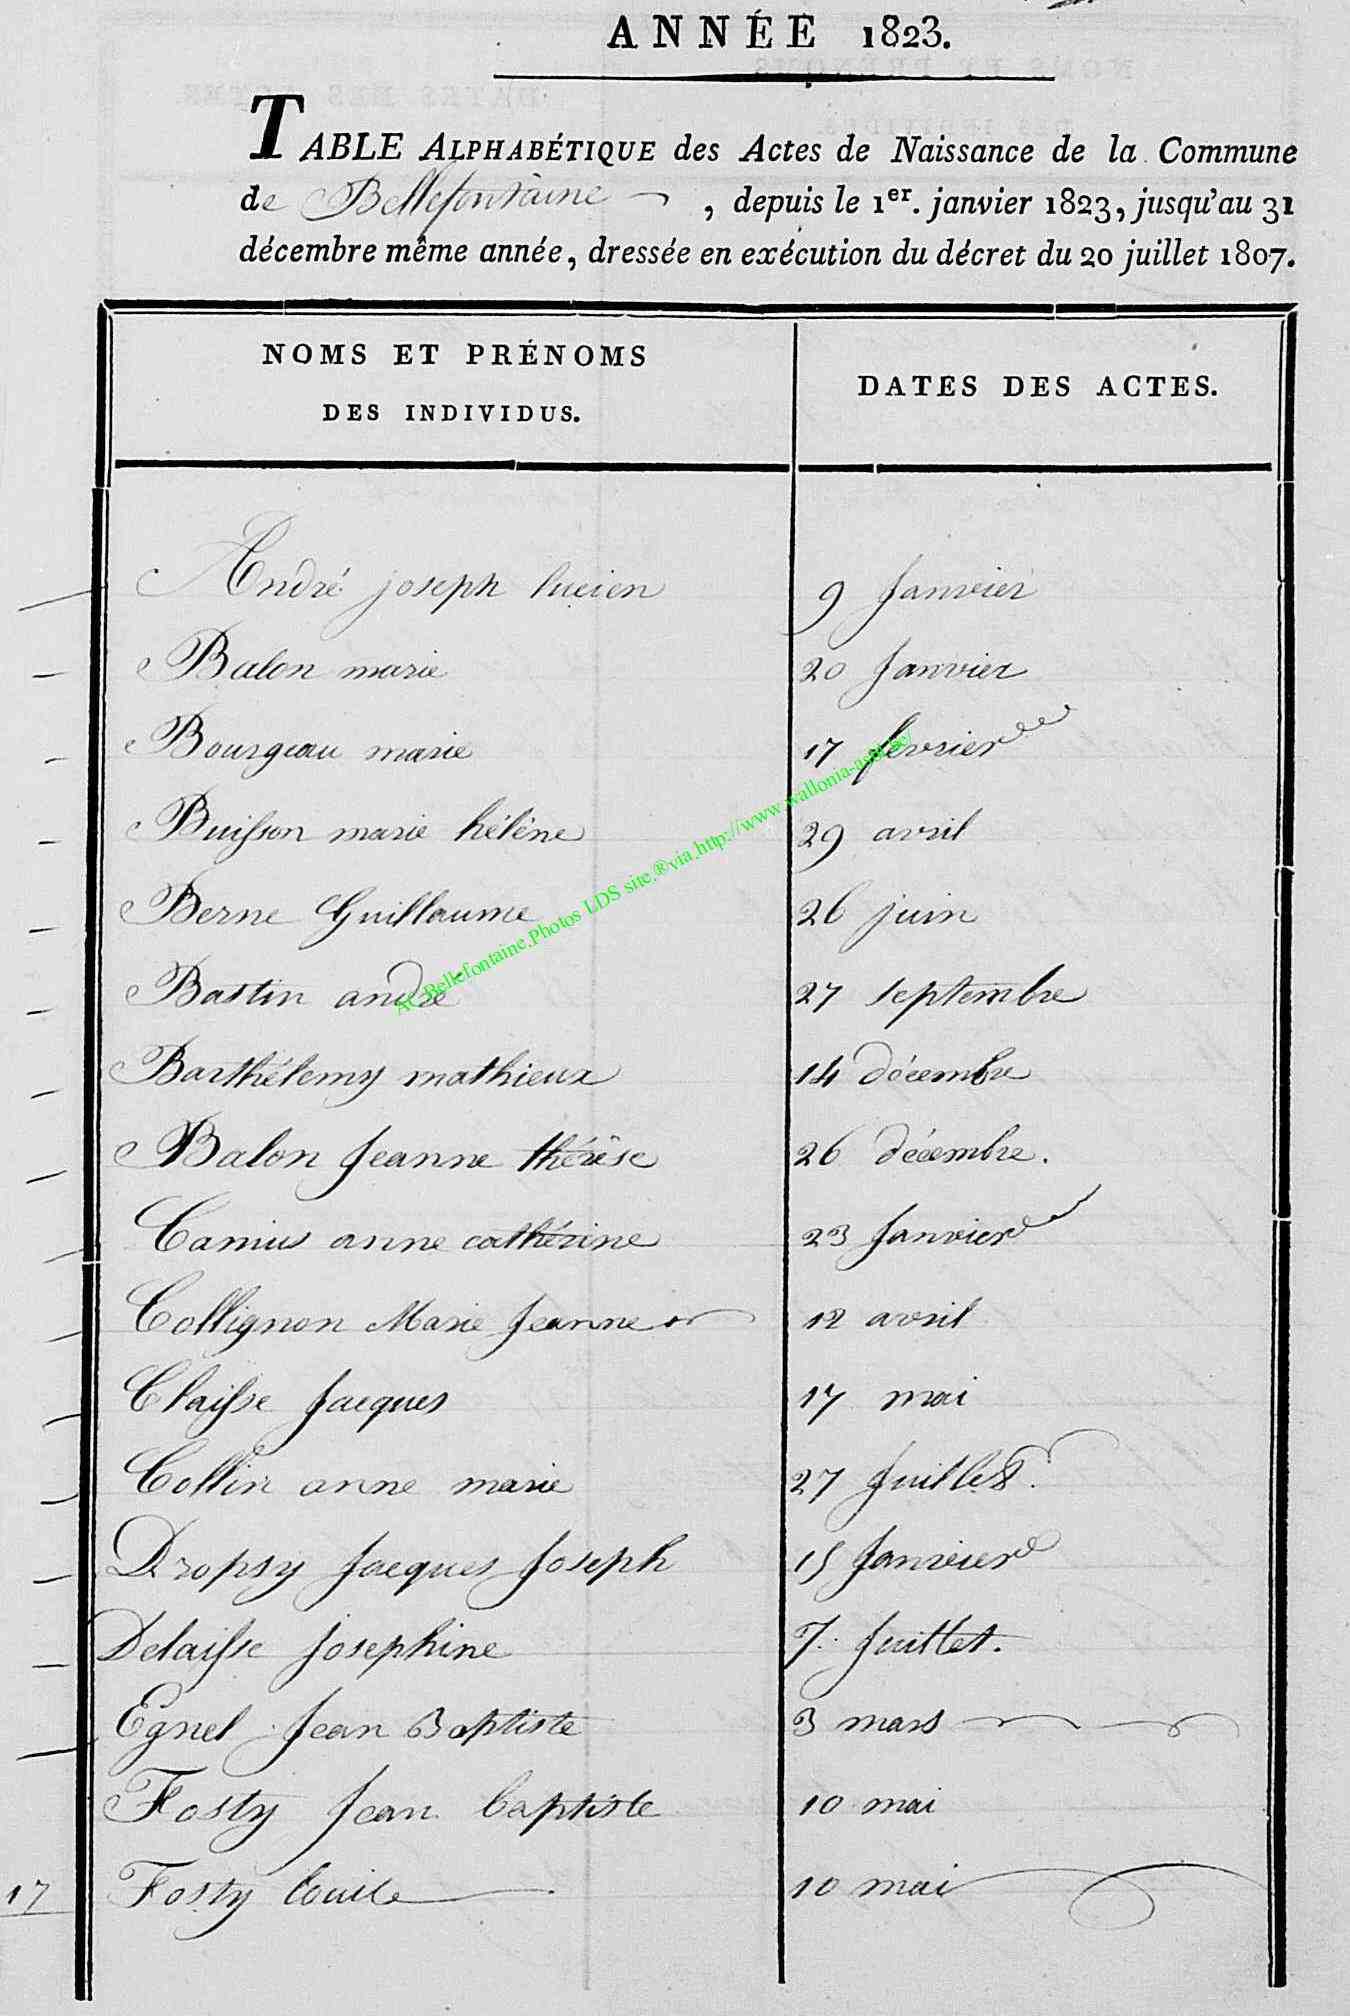 ANNÉE 1823.
TABLE ALPHABÉTIQUE des Actes de Naissance de la Commune
de Bellefontaine, depuis le 1er. janvier 1823, jusqu'au 31
décembre même année, dressée en exécution du décret du 20 juillet 1807.
NOMS ET PRÉNOMS
DES INDIVIDUS.
DATES DES ACTES.
André joseph lucien 9 Janvier
Balon marie 20 Janvier
Bourgeau marie 17 fevrier
Buisson marie hélène 29 avril
Berne Guillaume 26 juin
Bastin andré 27 septembre
Barthélemy mathieux 14 décembre
Balon Jeanne thérèse 26 décembre.
Camus anne cathérine 23 Janvier
Collignon Marie Jeanne 12 avril
Claisse Jacques 17 mai
Collin anne marie 27 Juillet.
Dropsy Jacques Joseph 15 Janvier
Delaisse Josephine 7. Juillet.
Egnel Jean Baptiste 3 mars
Fosty Jean baptiste 10 mai
17 Fosty Louise 10 mai
AC.Bellefontaine.Photos LDS site.®via.http://www.wallonia-asbl.be/